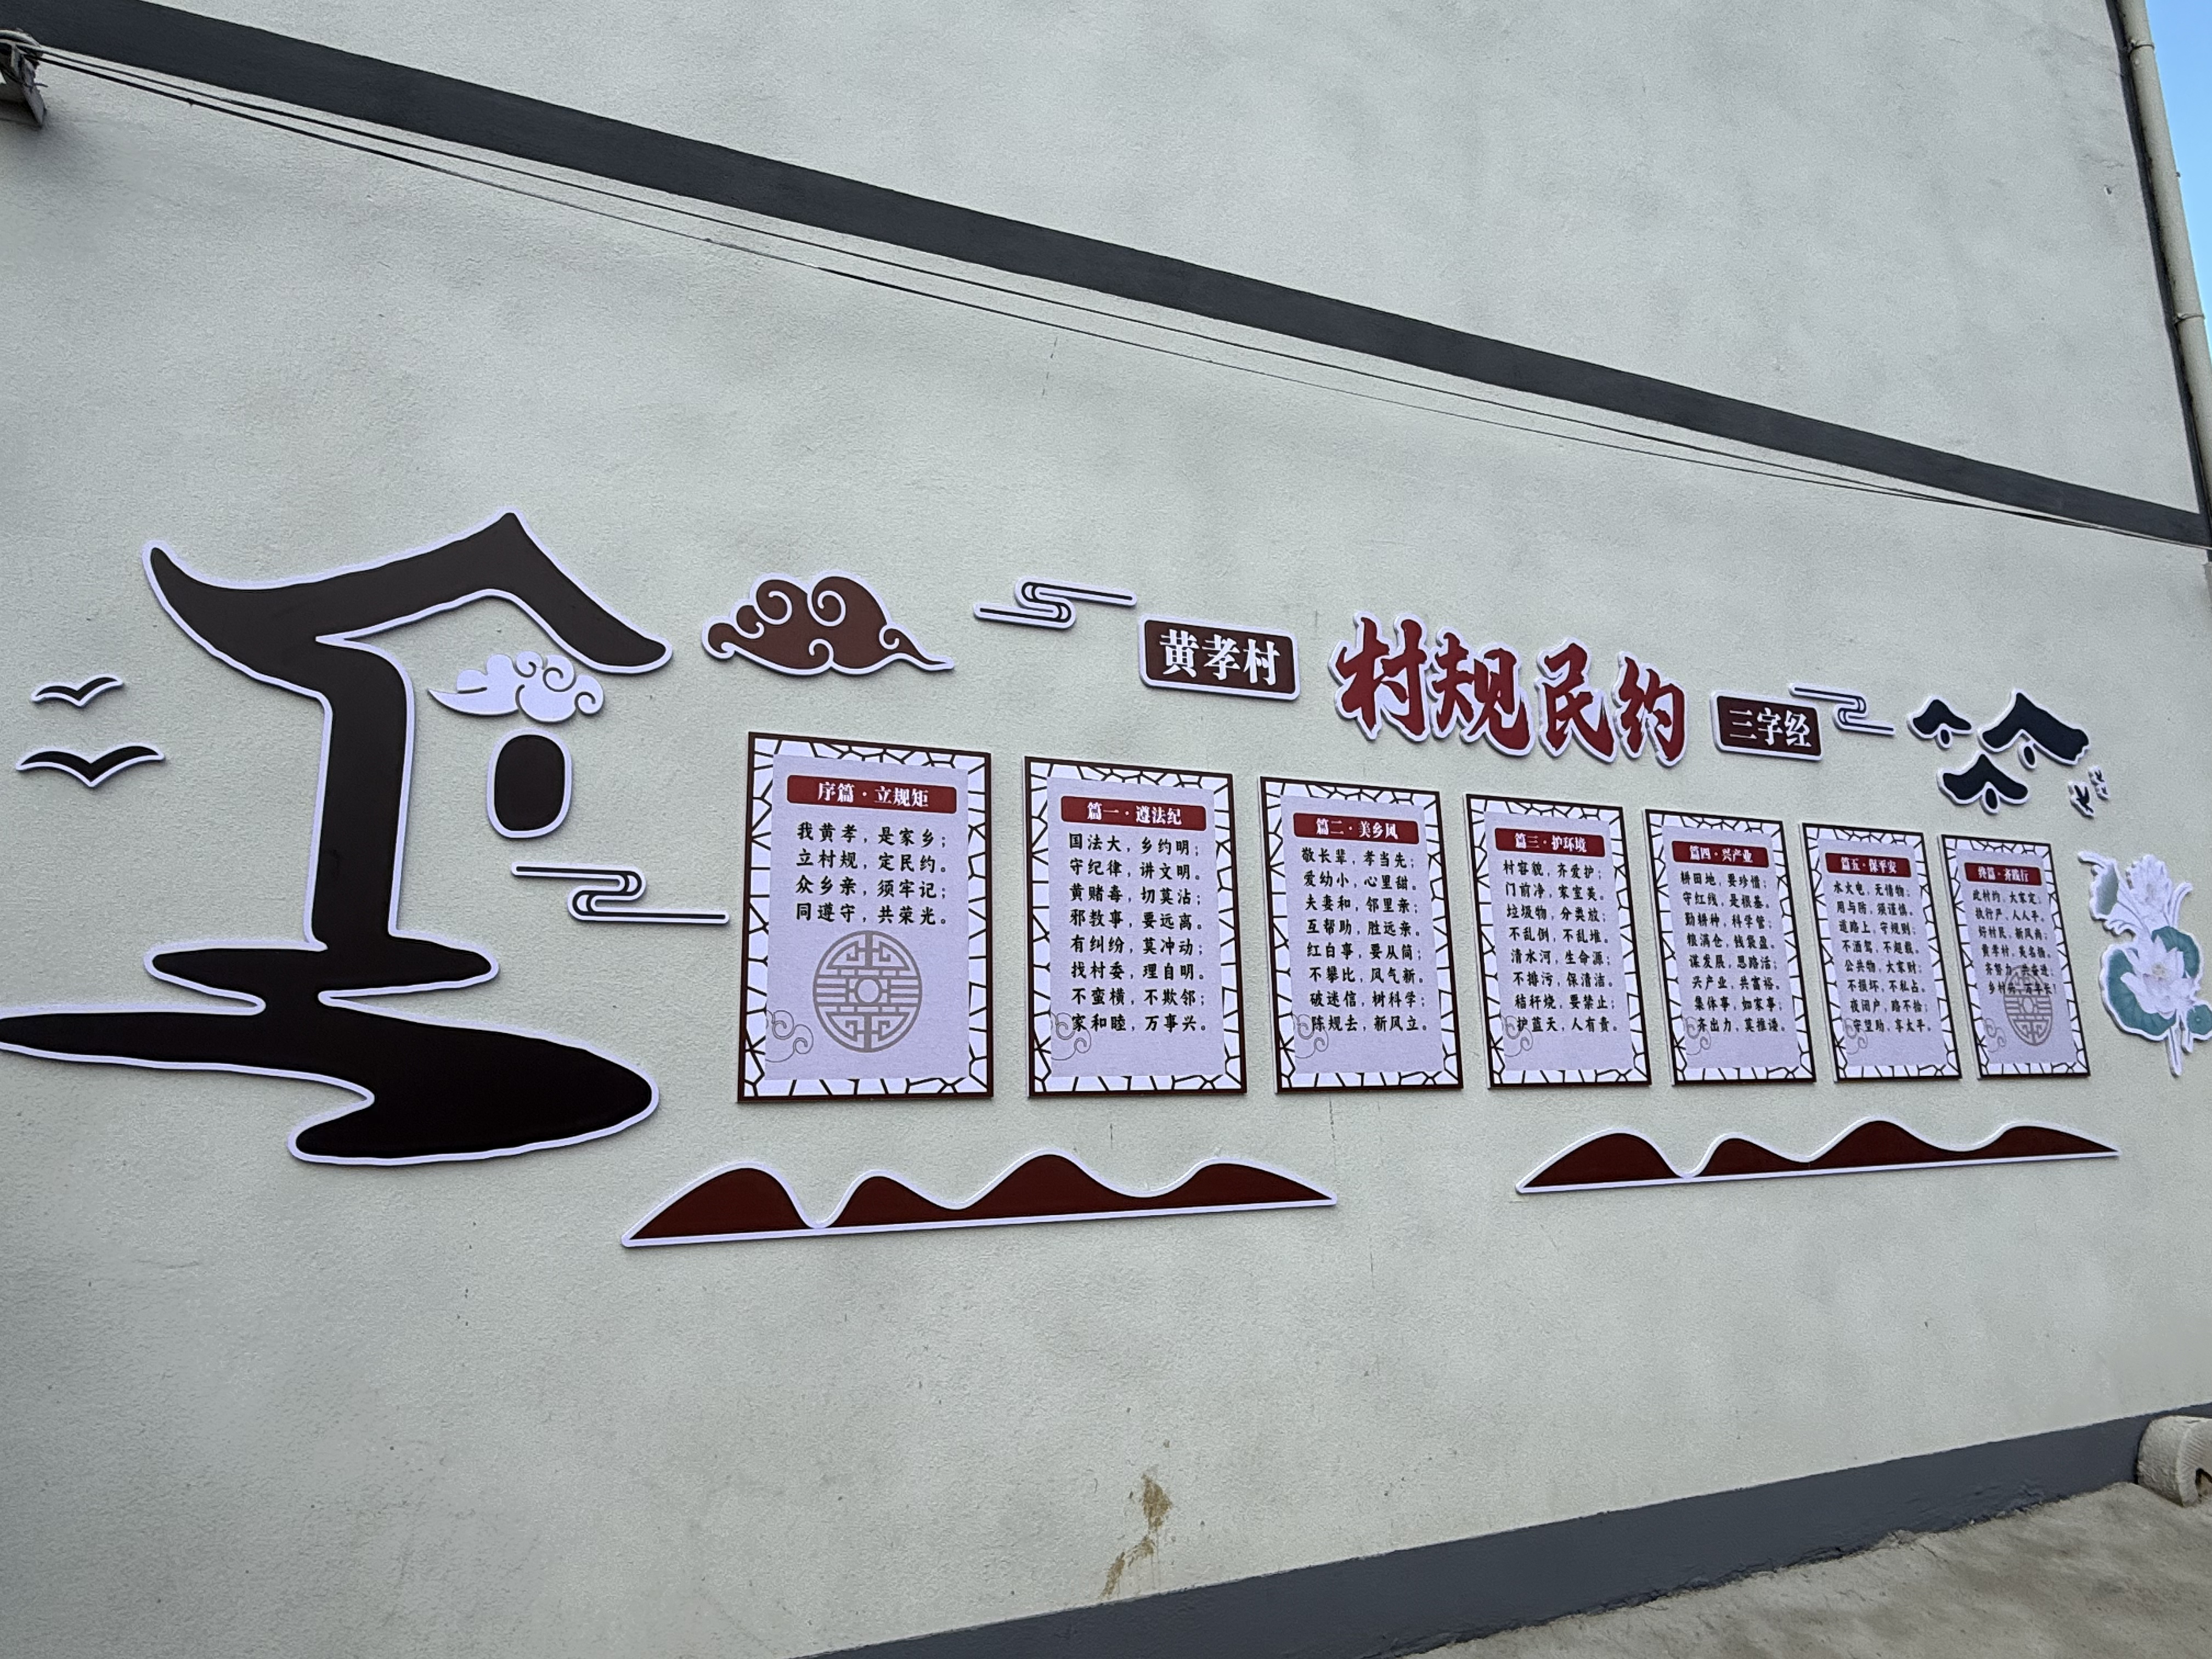 黄孝村
村规民约
三字经
序篇·立规矩
我黄孝，是家乡；
立村规，定民约。
众乡亲，须牢记；
同遵守，共荣光。
篇一·遵法纪
国法大，乡约明；
守纪律，讲文明。
黄赌毒，切莫沾；
邪教事，要远离。
有纠纷，莫冲动；
找村委，理自明。
不蛮横，不欺邻；
家和睦，万事兴。
篇二·美乡风
敬长辈，孝当先；
爱幼小，心里甜。
夫妻和，邻里亲；
互帮助，胜远亲。
红白事，要从简；
不攀比，风气新。
破迷信，树科学；
陈规去，新风立。
篇三·护环境
村容貌，齐爱护；
门前净，家室美。
垃圾物，分类放；
不乱倒，不乱堆。
清水河，生命源；
不排污，保清洁。
秸秆烧，要禁止；
护蓝天，人有责。
篇四·兴产业
耕田地，要珍惜；
守红线，是根基。
勤耕种，科学管；
粮满仓，钱袋盈。
谋发展，思路活；
兴产业，共富裕。
集体事，如家事；
齐出力，莫推诿。
篇五·保平安
水火电，无情物；
用与防，须谨慎。
道路上，守规则；
不酒驾，不超载。
公共物，大家财；
不损坏，不私占。
夜闭户，路不拾；
守望助，享太平。
终篇·齐践行
此村约，大家定；
执行严，人人平。
好村民，新风尚；
黄孝村，美名扬。
齐努力，共奋进；
乡村兴，万年长！